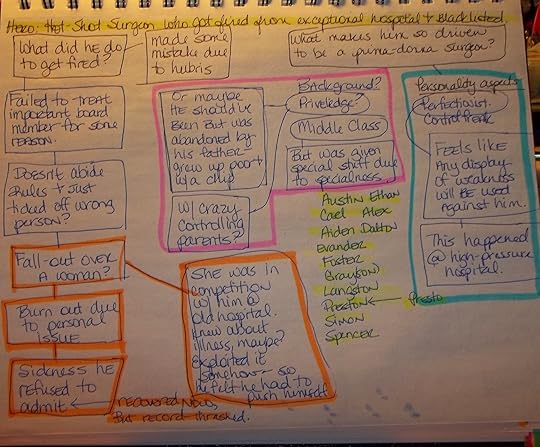 Hero: Hot-Shot Surgeon who got fired from exceptional hospital + Blacklisted
What did he do
to get fired?
made some
mistake due
to hubris
What makes him so driven
to be a prima-donna surgeon?
Failed to treat
important board
member for some
reason.
Doesn't abide
rules + just
ticked off wrong
person?
Fall-out over
a woman?
Burn out due
to personal
issue
Sickness he
refused to
admit
recovered now,
But record thrashed.
Or maybe
HE should've
been but was
abandoned by
his father
grew up poor
w/a chip
Background?
Priveledge?
Middle Class
But was given
special stuff due
to specialness
w/ crazy
controlling
parents?
She was in
competition
w/ him @
old hospital.
Knew about
illness, maybe?
Exploited it
somehow - so
he felt he had to
push himself
Austin Ethan
Cael Alex
Aiden Dalton
Evander
Foster
Grayford
Langston
Preston
Presto
Simon
Spencer
Personality aspects
Perfectionist.
Control freak
Feels like
any display
of weakness
will be used
against him.
This happened
@ high-pressure
hospital.